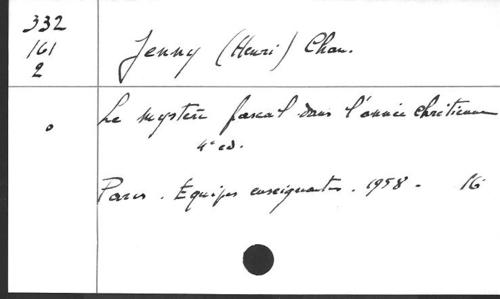 332
161
2
Jenny (Henri) Chan.
Le mystère pascal dans l'année chrétienne
4e ed.
Paris. Equipes enseignantes. 1958 - 16